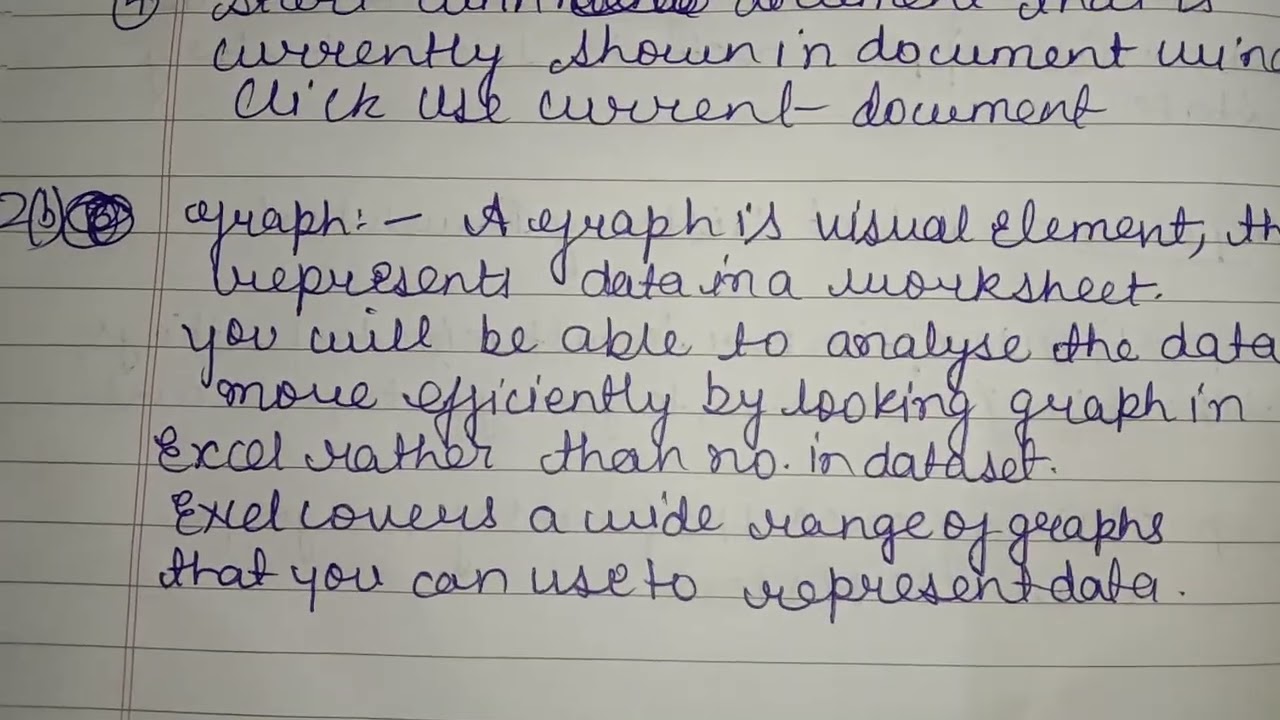 currently shown in document
Click use current document
2(b) graph:- A graph is visual element,
represents data in a worksheet.
you will be able to analyse the data
more efficiently by looking graph in
Excel rather than no. in dataset.
Exel covers a wide range of graphs
that you can use to represent data.